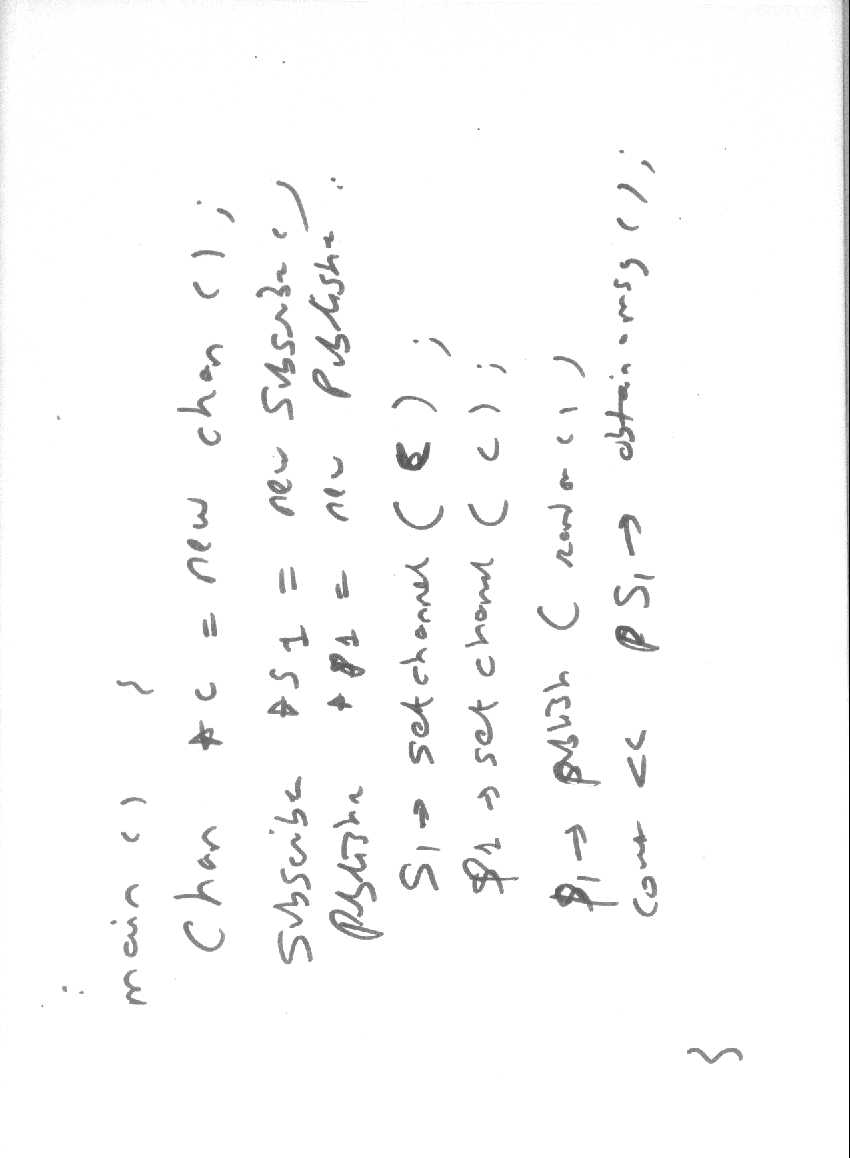 main () {
Chan *c = new chan ();
Subscribe *S1 = new Subscribe ()
Publishe *p1 = new Publishe ;
S1 → setchannel (c);
p1 → set channel (c);
p1 → publish ( ())
cout << pS1 → obtain-msg ();
}